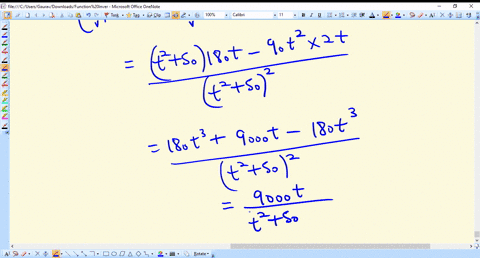 file:///C:/Users/Gaurav/Downloads/Function%20Inver - Microsoft Office OneNote
100% Calibri 11
= (t²+50)180t - 90t² × 2t
(t²+50)²
= 180t³ + 9000t - 180t³
(t²+50)²
= 9000t
t²+50
Rotate